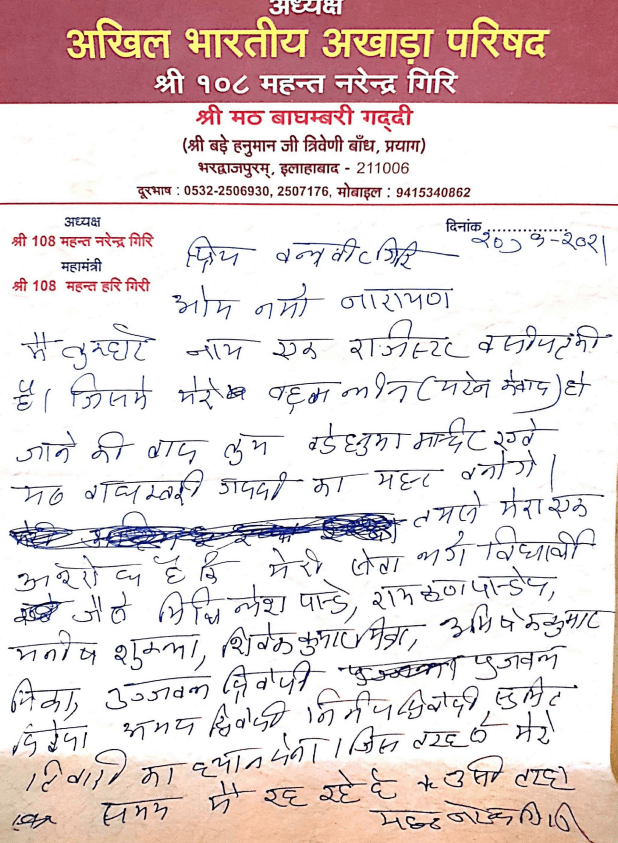 अध्यक्ष
अखिल भारतीय अखाड़ा परिषद
श्री १०८ महन्त नरेन्द्र गिरि
श्री मठ बाघम्बरी गद्दी
(श्री बड़े हनुमान जी त्रिवेणी बाँध, प्रयाग)
भरद्वाजपुरम्, इलाहाबाद - 211006
दूरभाष : 0532-2506930, 2507176, मोबाइल : 9415340862
अध्यक्ष
श्री 108 महन्त नरेन्द्र गिरि
महामंत्री
श्री 108 महन्त हरि गिरी
दिनांक
प्रिय गिरि
ओम नमो नारायण
मै तुम्हारे नाम एक राजीस्टर वसीयत की
है। जिसमे मेरे हो
जाने की बाद तुम बडे हनुमा मन्दिर एवं
मठ बाघम्बरी गददी का महंत बनोगे।
तुमसे मेरा एक
अनुरोध है कि मेरी सेवा विद्यार्थी
जैसे मिथिलेश पान्डे, रामकृष्ण पान्डेय,
मनीष शुक्ला, शिवेक कुमार मिश्रा, अभिषेक कुमार
मिश्रा, उज्जवल द्विवेदी प्रज्जवल
द्विवेदी अभय द्विवेदी निर्भय द्विवेदी, सुमित
तिवारी का ध्यान देना। जिस तरह से मेरे
समय मै रह रहे है उसी तरह
महन्त नरेन्द्र गिरि